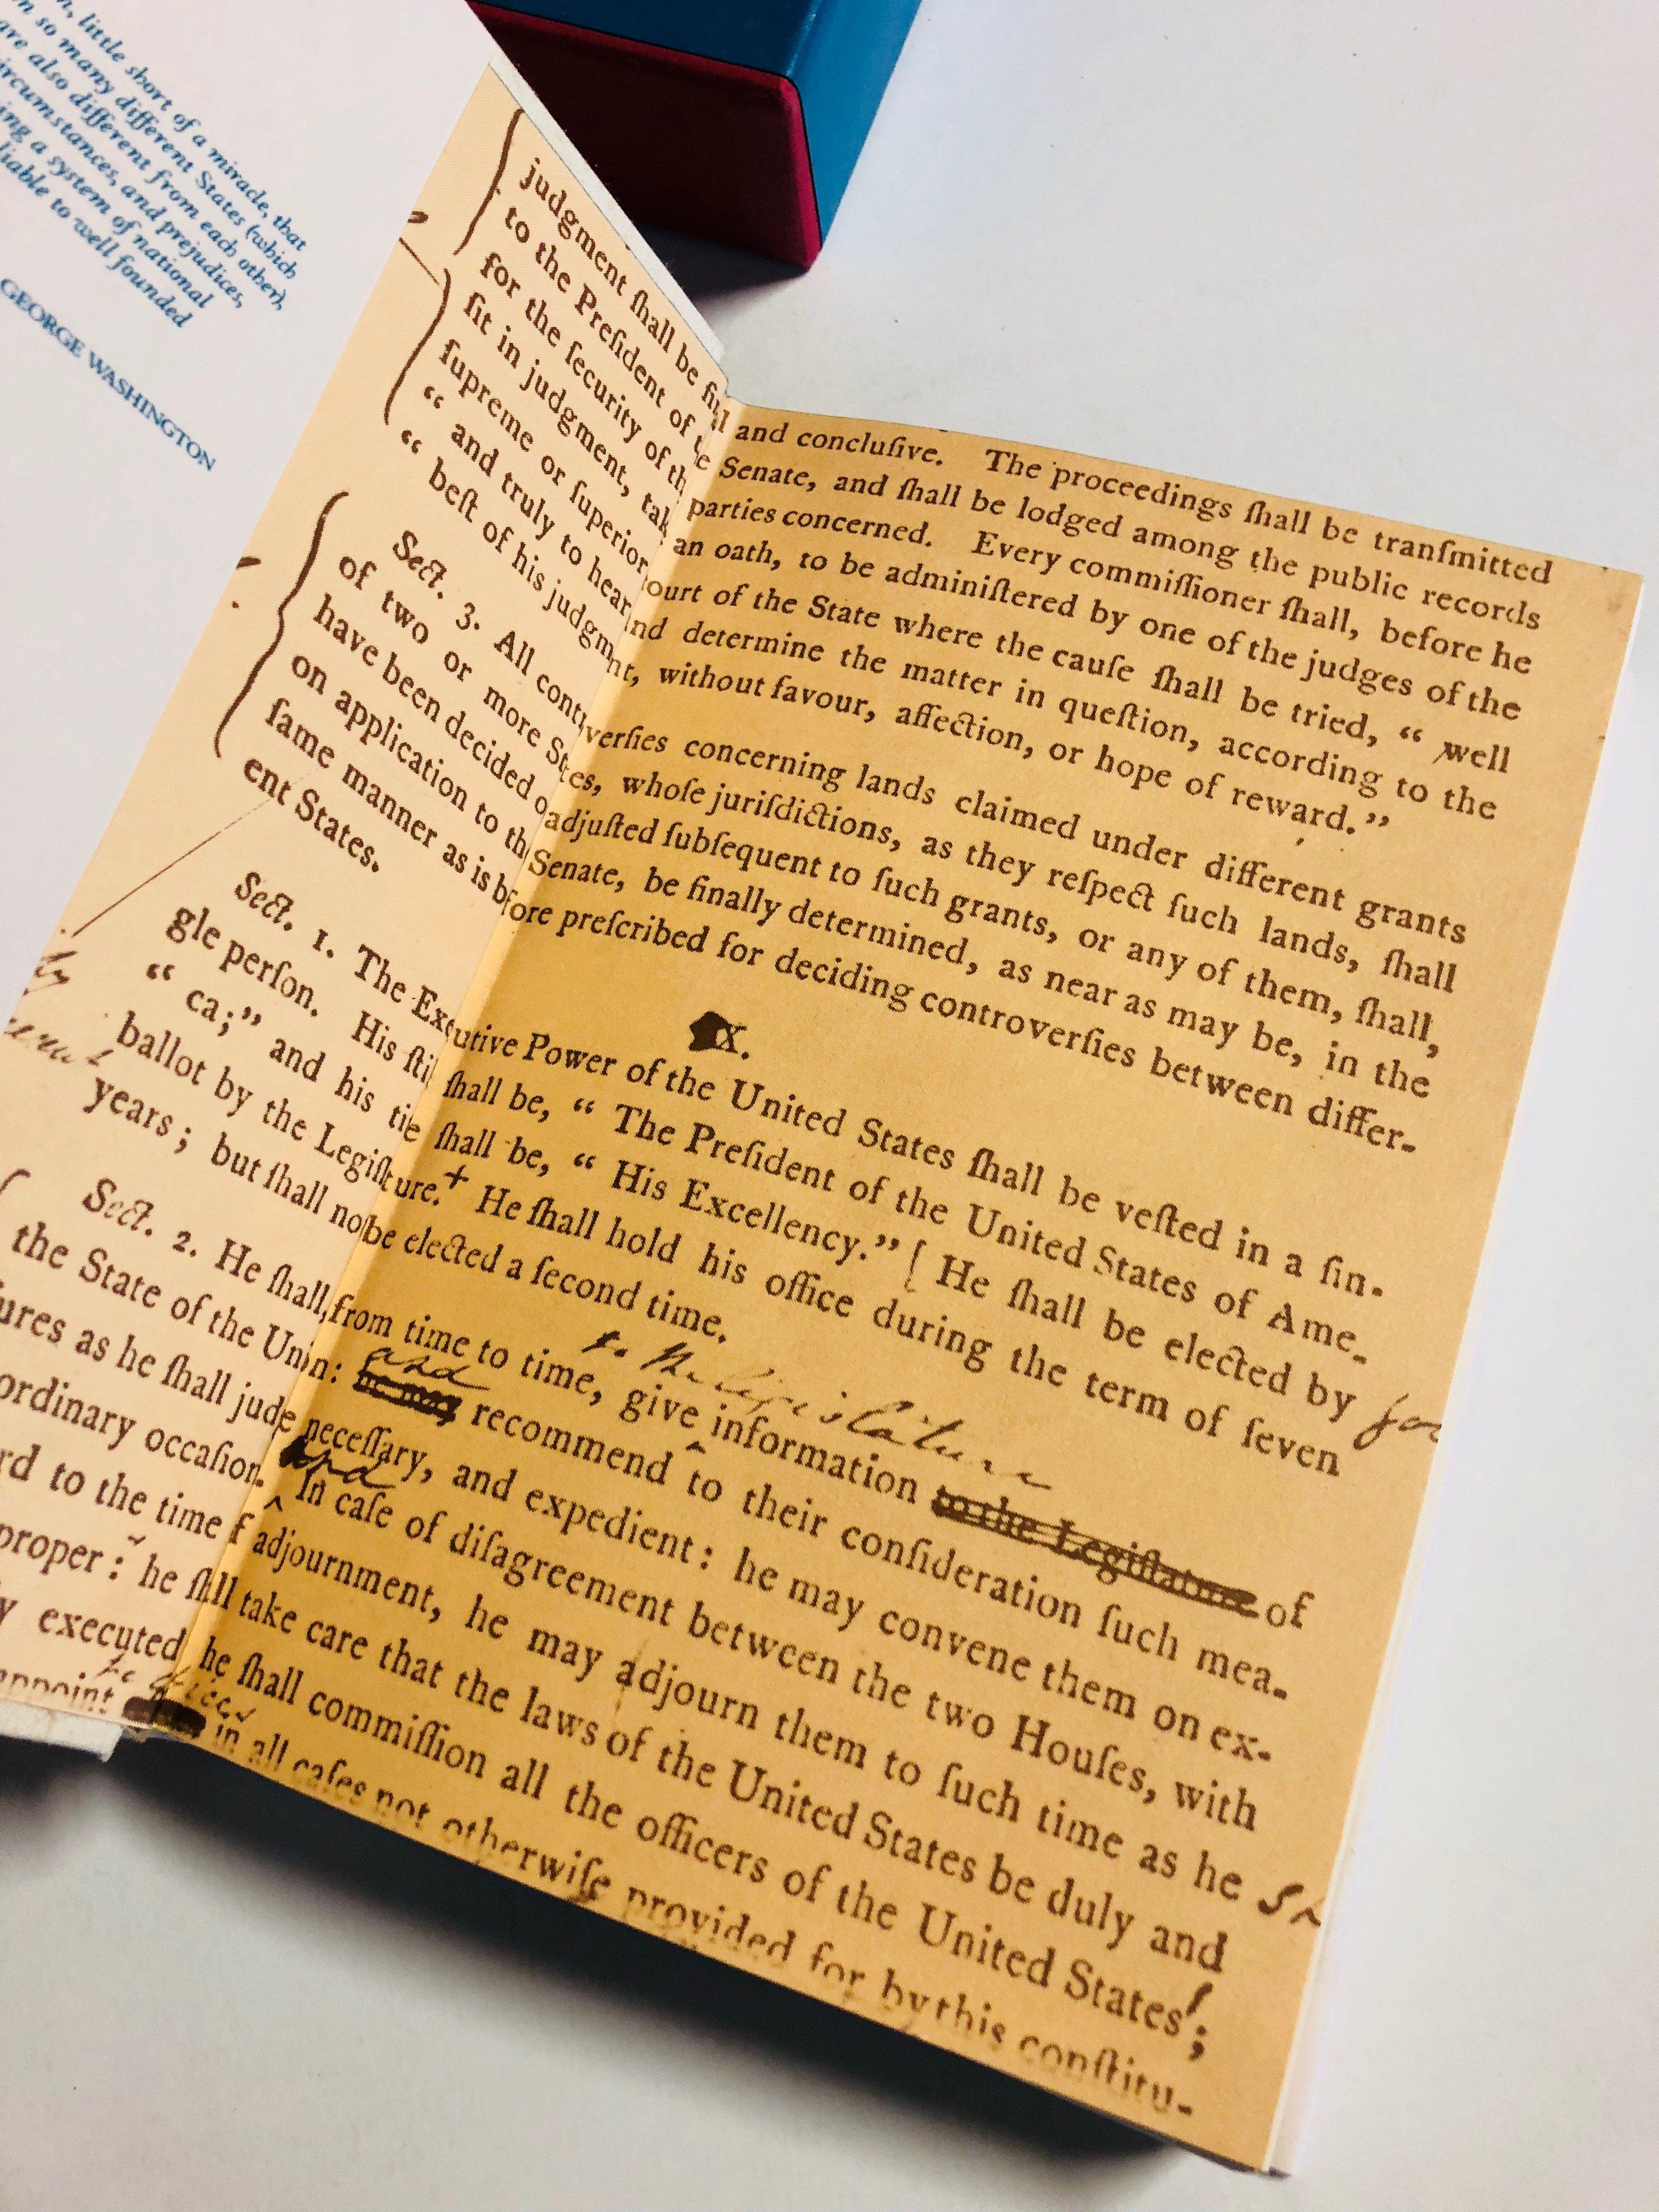 little short of a miracle, that
so many different States (which
are also different from each other),
ircumstances, and prejudices,
ing a system of national
liable to well founded
GEORGE WASHINGTON
judgment ſhall be final and concluſive. The proceedings ſhall be tranſmitted
to the Preſident of the Senate, and ſhall be lodged among the public records
for the ſecurity of the parties concerned. Every commiſſioner ſhall, before he
ſit in judgment, take an oath, to be adminiſtered by one of the judges of the
ſupreme or ſuperior court of the State where the cauſe ſhall be tried, “ well
“ and truly to hear and determine the matter in queſtion, according to the
“ beſt of his judgment, without favour, affection, or hope of reward.”
Sect. 3. All controverſies concerning lands claimed under different grants
of two or more States, whoſe juriſdictions, as they reſpect ſuch lands, ſhall
have been decided or adjuſted ſubſequent to ſuch grants, or any of them, ſhall,
on application to the Senate, be finally determined, as near as may be, in the
ſame manner as is before preſcribed for deciding controverſies between differ-
ent States.
X.
Sect. 1. The Executive Power of the United States ſhall be veſted in a ſin-
gle perſon. His ſtile ſhall be, “ The Preſident of the United States of Ame-
“ ca;” and his title ſhall be, “ His Excellency.” [ He ſhall be elected by
ballot by the Legiſlature.+ He ſhall hold his office during the term of ſeven
years ; but ſhall not be elected a ſecond time.
to the legislature
Sect. 2. He ſhall, from time to time, give information to the Legiſlature of
and
the State of the Union: he may recommend to their conſideration ſuch mea-
ures as he ſhall judge neceſſary, and expedient : he may convene them on ex-
and
ordinary occaſion. In caſe of diſagreement between the two Houſes, with
rd to the time of adjournment, he may adjourn them to ſuch time as he
proper : he ſhall take care that the laws of the United States be duly and
y executed he ſhall commiſſion all the officers of the United States ;
appoint in all caſes not otherwiſe provided for by this conſtitu-